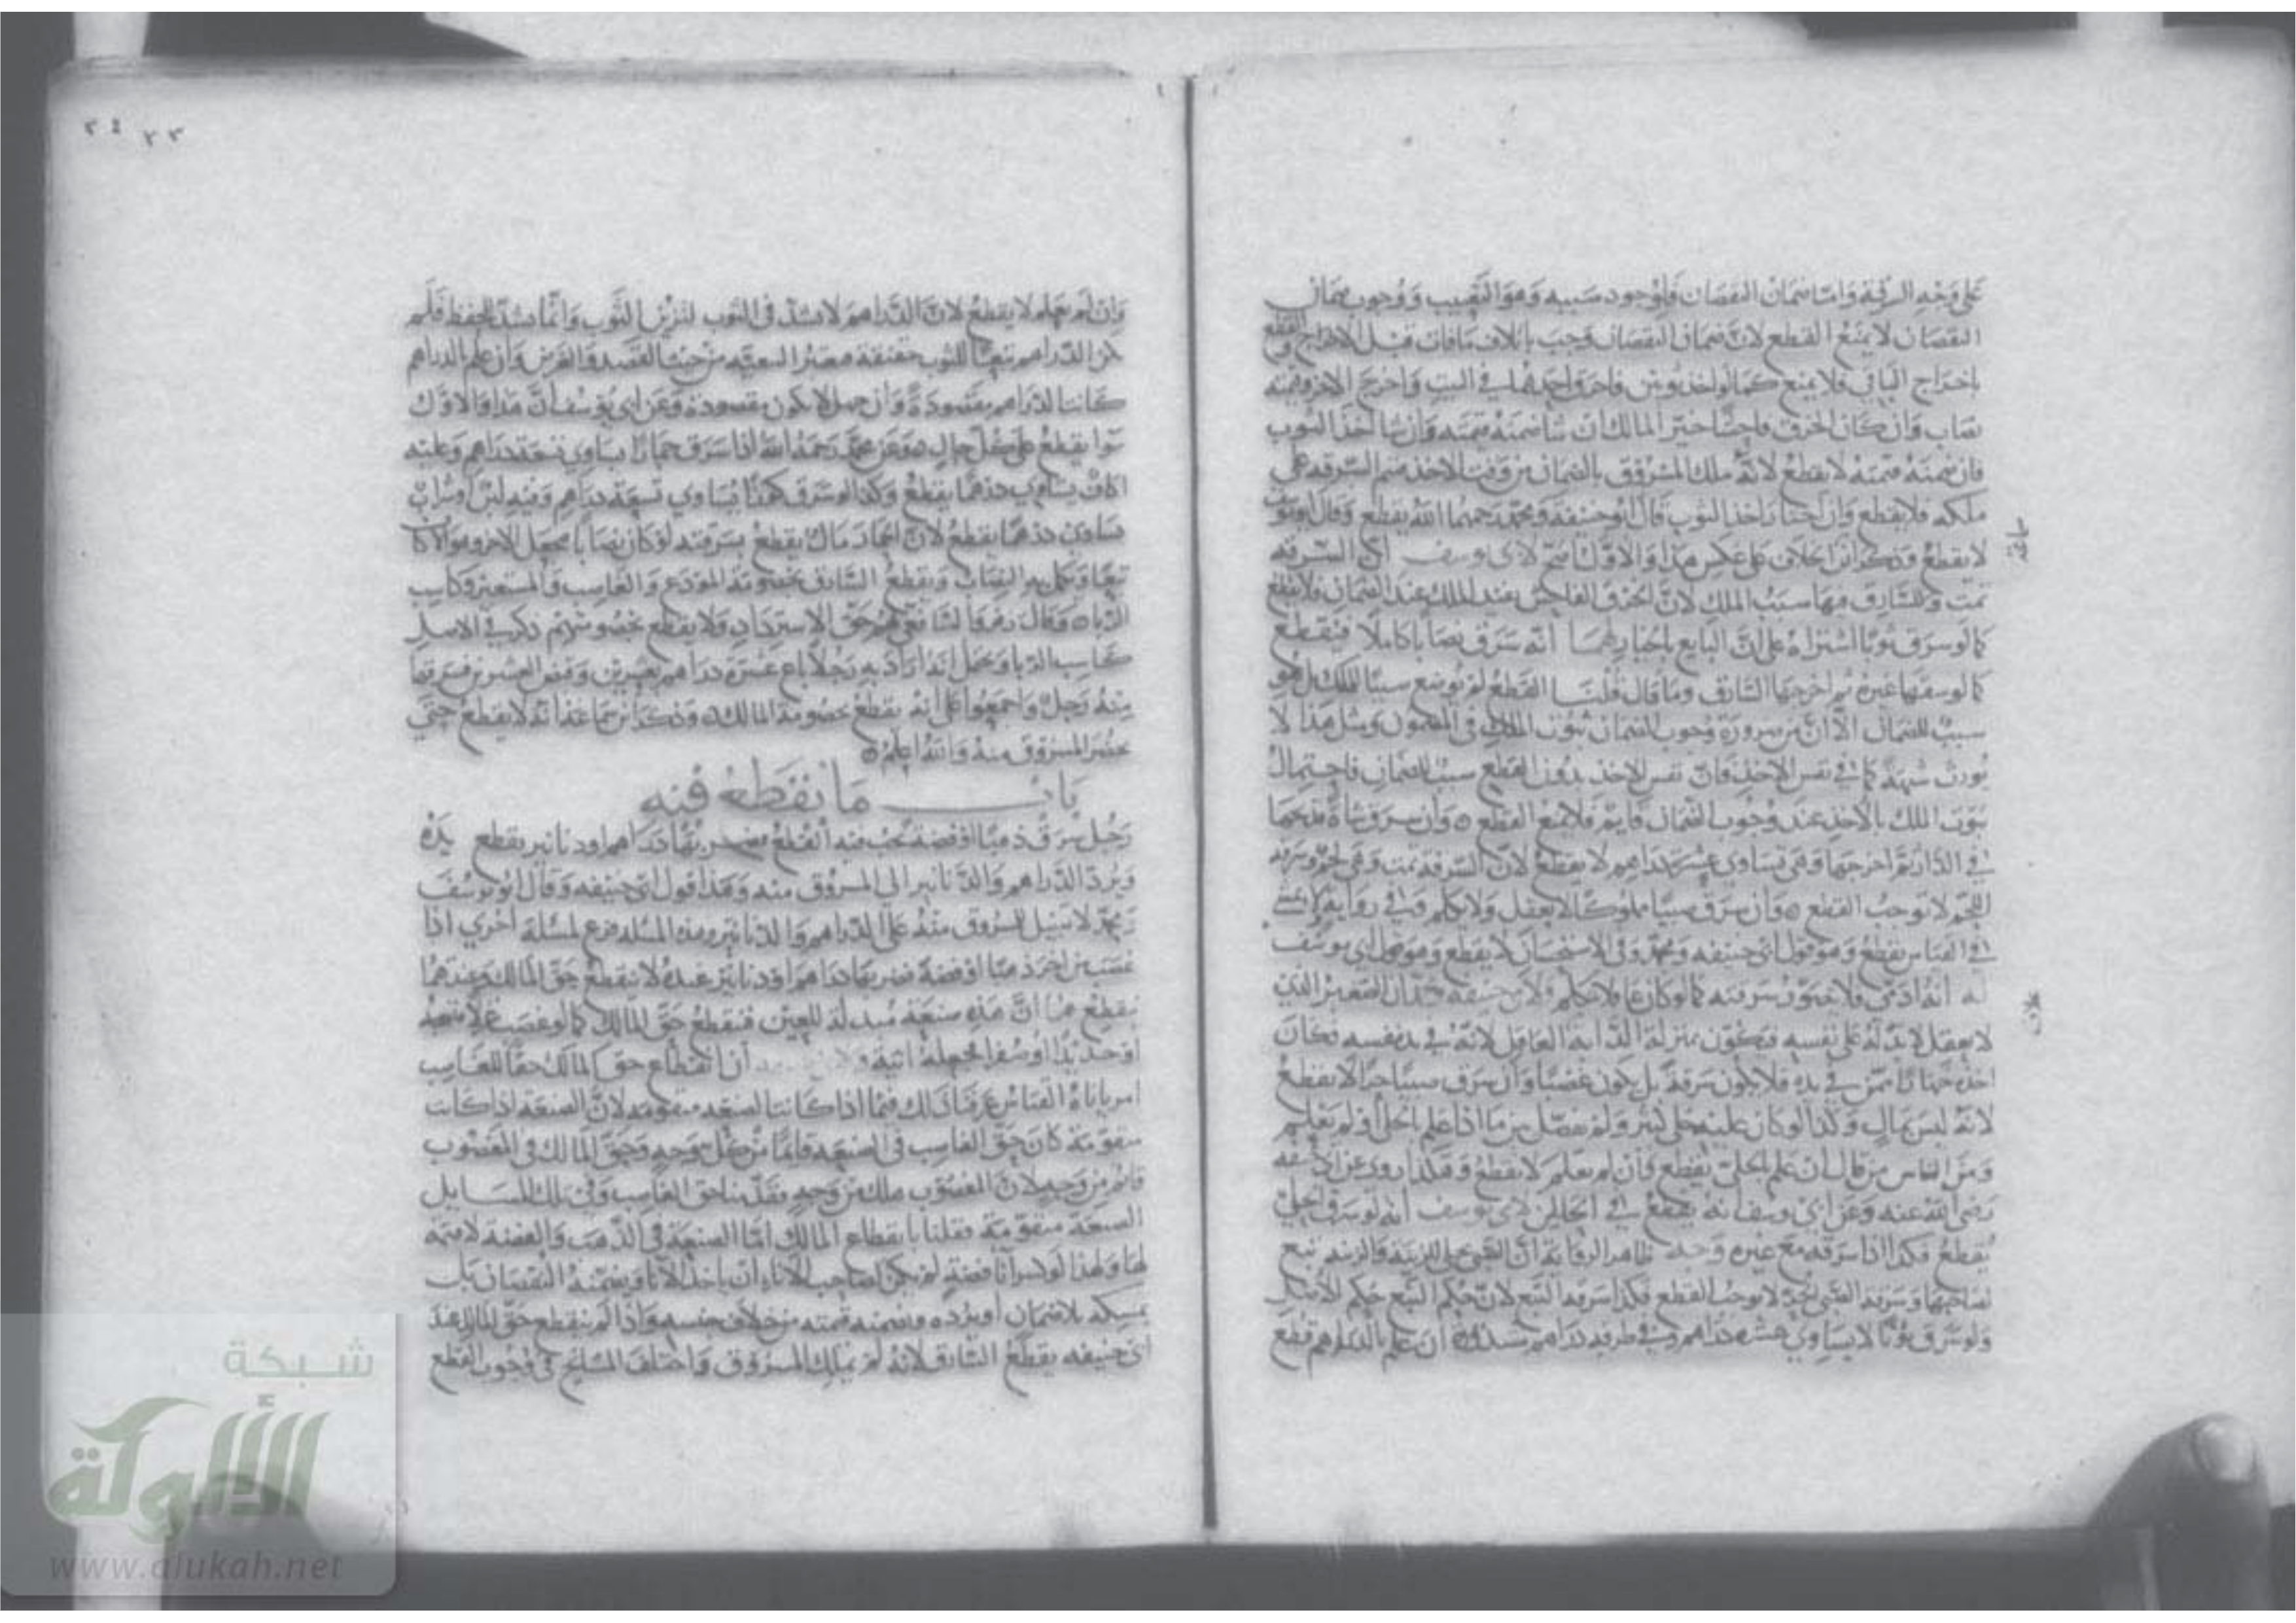 على وجه السرقة واما ضمان النقصان فلوجود سببه وهو التعييب ووجوب ضمان
النقصان لا يمنع القطع لان ضمان النقصان وجب باتلاف ما فات قبل الاخراج والقطع
باخراج الباقي فلا يمنع كما لو اخذ ثوبين واحرق احدهما في البيت واخرج الاخر وقيمته
نصاب وان كان الخرق فاحشا خير المالك ان شا ضمنه قيمته وان شا اخذ الثوب
فان ضمنه قيمته لا يقطع لانه ملك المسروق بالضمان من وقت الاخذ فتتم السرقة على
ملكه فلا يقطع وان اختار اخذ الثوب قال ابو حنيفة ومحمد رحمهما الله يقطع وقال ابو يوسف
لا يقطع وذكر الخلاف على عكس هذا والاول اصح لابي يوسف ان السرقة
تمت وللسارق فيها سبب الملك لان الخرق الفاحش يفيد الملك عند الضمان فلا يقطع
كما لو سرق ثوبا اشتراه على ان البايع بالخيار لهما انه سرق نصابا كاملا فيقطع
كما لو غيره ثم اخرجها السارق وما قال قلنا القطع لم يوضع سببا للملك بل هو
سبب للضمان الا ان من ضرورة وجوب الضمان ثبوت الملك في المضمون ومثل هذا لا
يورث شبهة كما في نفس الاخذ فان نفس الاخذ بدون القطع سبب للضمان فاحتمال
ثبوت الملك بالاخذ عند وجوب الضمان قايم فلا يمنع القطع ه وان سرق شاة فذبحها
في الدار ثم اخرجها وهي تساوي عشرة دراهم لا يقطع لان السرقة تمت وهي لحم وسرقة
اللحم لا توجب القطع ه وان سرق صبيا مملوكا لا يعقل ولا يتكلم وفي رواية
في القياس يقطع وهو قول ابي حنيفه ومحمد وفي الاستحسان لا يقطع وهو قول ابي يوسف
له انه ادمي فلا سرقته كما لو كان عاقلا يتكلم ولابي حنيفه ان الصغير الذي
لا يعقل لا يد له على نفسه فيكون بمنزلة الدابة العاقل لانه في يد نفسه فكان
في يده فلا يكون سرقة بل يكون غصبا وان سرق صبيا حرا لا يقطع
لانه ليس بمال وكذا لو كان عليه حلي كثير ولم يفصل بين ما اذا علم بالحلي او لم يعلم
ومن الناس من قال ان علم بالحلي يقطع وان لم يعلم لا يقطع وهكذا روي عن ابي حنيفه
رضي الله عنه وعن ابي يوسف انه يقطع في الحالين لابي يوسف انه لو سرق الحلي
يقطع فكذا اذا سرقه مع غيره وجه ظاهر الرواية ان الحلي للزينة والزينة تبع
لصاحبها وسرقة الصبي الحر لا توجب القطع فكذا سرقة التبع لان حكم التبع حكم الاصل
ولو سرق ثوبا لا يساوي عشرة دراهم وفي طرفه دراهم ان علم بالدراهم قطع
وان لم يعلم لا يقطع لان الدراهم لا تشد في الثوب لتزيين الثوب وانما تشد للحفظ فلم
تكن الدراهم تبعا للثوب حقيقة التبعية من حيث القصد والغرض وان علم بالدراهم
كانت الدراهم مقصودة وان جهل لا تكون مقصودة وعن ابي يوسف ان هذا والاول
سوا يقطع على كل حال ه وعن محمد رحمه الله اذا سرق حمارا يساوي تسعة دراهم وعليه
اكاف يساوي درهما يقطع وكذا لو سرق يساوي تسعة دراهم وفيه لبن او شراب
يساوي درهما يقطع لان الحمار مال يقطع بسرقته لو كان نصابا فيجعل الاخر وهو الاكاف
تبعا ويكمل به النصاب ويقطع السارق بخصومة المودع والغاصب والمستعير وكاسب
الربا ه وقال زفر والشافعي لهم حق الاسترداد ولا يقطع بخصومتهم ذكر في الاصل
كاسب الربا ويحمل انه اراد به رجلا باع عشرة دراهم بعشرين وقبض العشرين فسرقها
منه رجل واجمعوا على انه يقطع بخصومة المالك ه وذكر انه لا يقطع حتى
يحضر المسروق منه والله اعلم ه
باب ما يقطع فيه
رجل سرق ذهبا او فضة يجب فيه القطع فضربها دراهم او دنانير يقطع يده
ويرد الدراهم والدنانير الى المسروق منه وهذا قول ابي حنيفه وقال ابو يوسف
ومحمد لا سبيل للمسروق منه على الدراهم والدنانير وهذه المسئلة فرع لمسئلة اخرى اذا
غصب من اخر ذهبا او فضة فضربها دراهم او دنانير عنده لا ينقطع حق المالك وعندهما
ينقطع هما ان هذه صنعة مبدلة للعين فينقطع حق المالك كما لو غصب
او حديدا او صفرا فجعله انية ولابي حنيفه ان انقطاع حق المالك حقا للغاصب
امر ياباه القياس عرفنا ذلك فيما اذا كانت الصنعة متقومة لان الصنعة اذا كانت
متقومة كان حق الغاصب في الصنعة قايما من كل وجه وحق المالك في المغصوب
قايم من وجه لان المغصوب ملك من وجه فقدمنا حق الغاصب وفي تلك المسايل
الصنعة متقومة فقلنا بانقطاع المالك اما الصنعة في الذهب والفضة لا قيمة
لها ولهذا لو كسر انا فضة لم يكن لصاحب الانا ان ياخذ الانا ويضمنه النقصان بل
يمسكه بلا ضمان او يرده ويضمنه قيمته من خلاف جنسه واذا لم ينقطع حق المالك عند
ابي حنيفه يقطع السارق لانه لم يملك المسروق واختلف المشايخ في وجوب القطع
شبكة
الألوكة
www.alukah.net